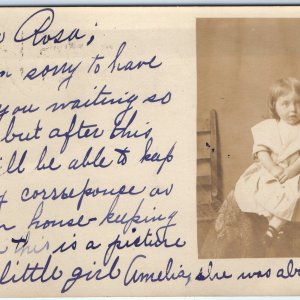 Rosa;
sorry to have
you waiting so
but after this
ill be able to kep
corsseponse as
house-kepping
this is a picture
little girl Amelia, she was ab